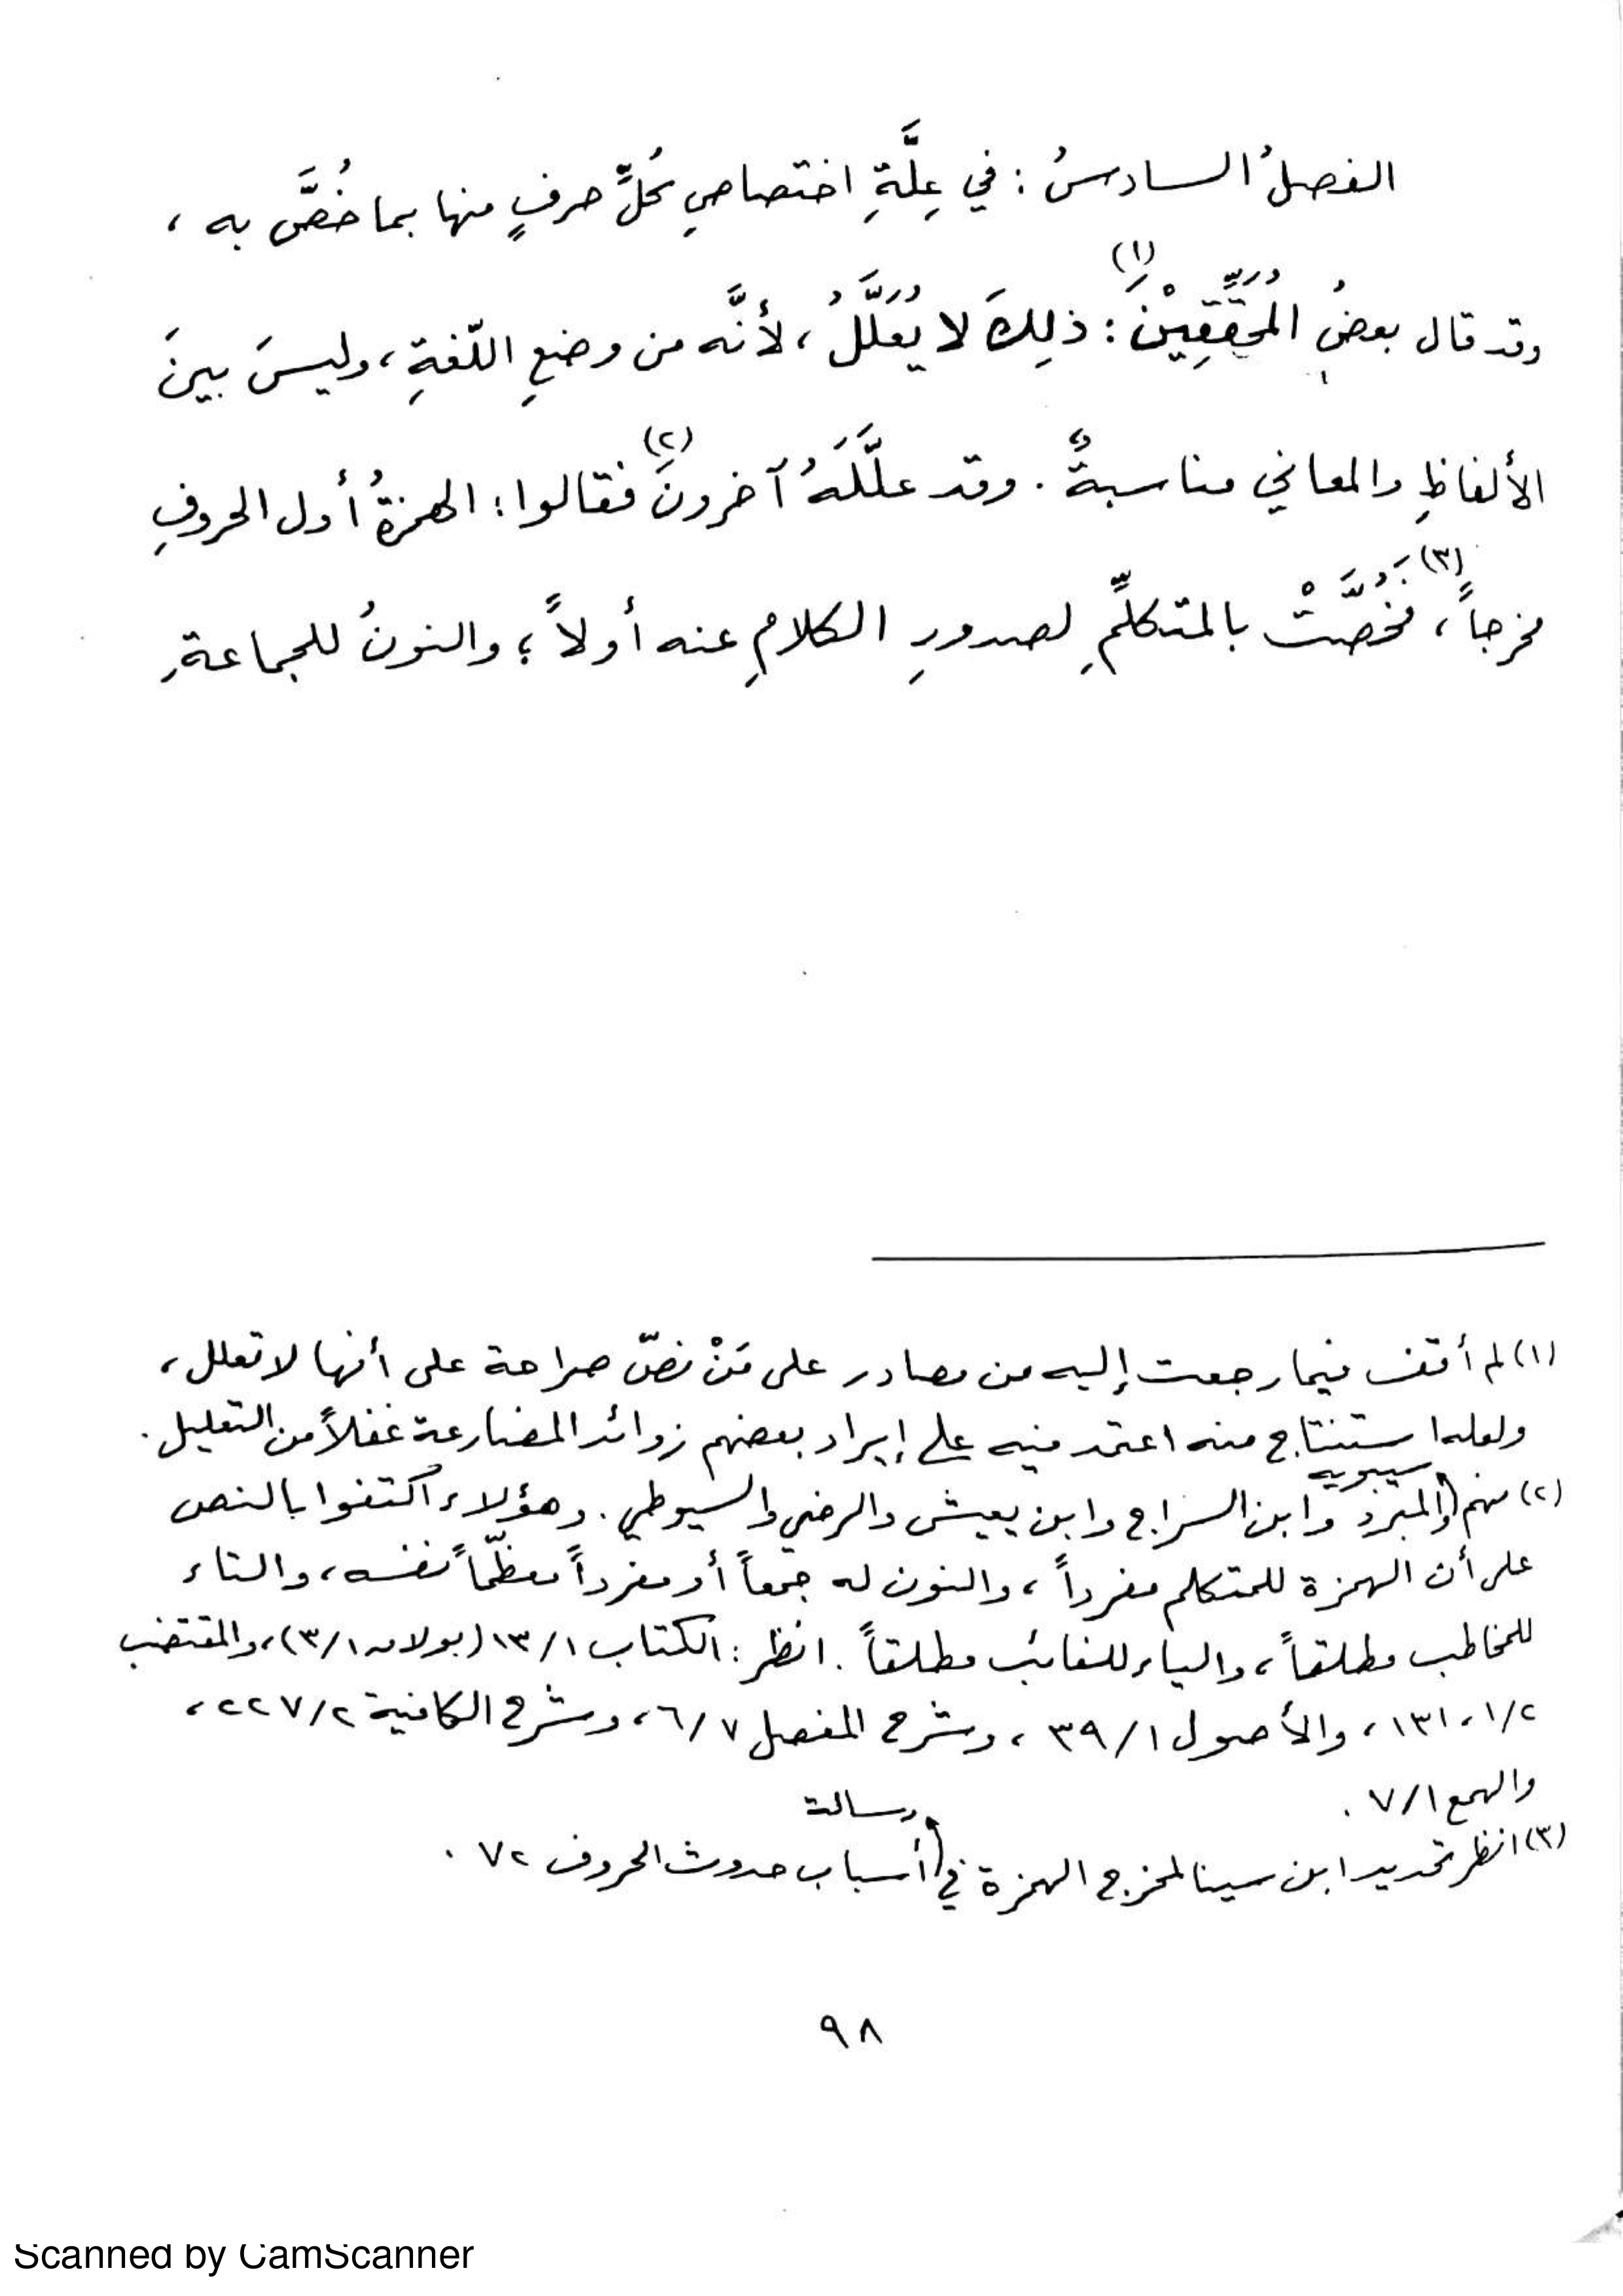 الفصلُ السادسُ : في عِلَّةِ اختصاصِ كُلِّ حرفٍ منها بما خُصَّ به ،
وقد قال بعضُ المُحَقِّقِيْنَ (١) : ذلِكَ لا يُعَلَّلُ ، لأنَّه من وضعِ اللّغةِ ، وليسَ بينَ
الألفاظِ والمعاني مناسبةٌ . وقد علَّلَهُ آخرونَ (٢) فقالوا : الهمزةُ أول الحروفِ
مخرجاً (٣) ، فَخُصَّتْ بالمتكلِّمِ لصدورِ الكلامِ عنه أولاً ؛ والنونُ للجماعةِ
(١) لم أقف فيما رجعت إليه من مصادر على مَنْ نصّ صراحة على أنها لا تعلل ،
ولعله استنتاج منه اعتمد فيه على إيراد بعضهم زوائد المضارعة غفلاً من التعليل .
(٢) منهم سيبويه والمبرد وابن السراج وابن يعيش والرضي والسيوطي . وهؤلاء اكتفوا بالنص
على أن الهمزة للمتكلم مفرداً ، والنون له جمعاً أو مفرداً معظّماً نفسه ، والتاء
للمخاطب مطلقاً ، والياء للغائب مطلقاً . انظر : الكتاب ١٣/١ (بولاق ٣/١) ، والمقتضب
١/٢ ، ١٣١ ، والأصول ٣٩/١ ، وشرح المفصل ٦/٧ ، وشرح الكافية ٢٢٧/٢ ،
والهمع ٧/١ .
(٣) انظر تحديد ابن سينا لمخرج الهمزة في رسالة أسباب حدوث الحروف ٧٢ .
٩٨
Scanned by CamScanner